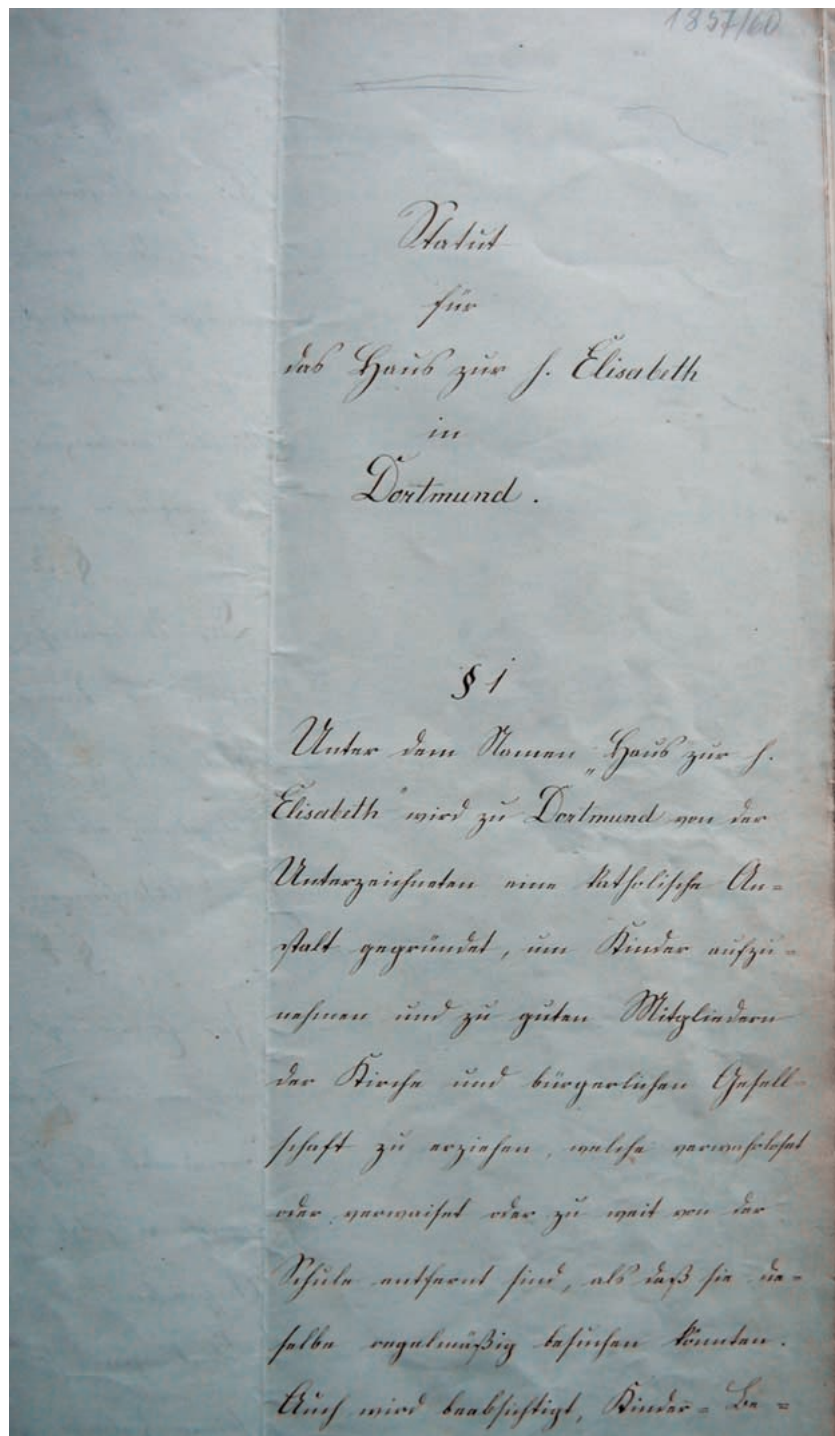 1857/60
Statut
für
das Haus zur h. Elisabeth
in
Dortmund.
§ 1
Unter dem Namen „Haus zur h.
Elisabeth" wird zu Dortmund von der
Unterzeichneten eine katholische An=
stalt gegründet, um Kinder aufzu=
nehmen und zu guten Mitgliedern
der Kirche und bürgerlichen Gesell=
schaft zu erziehen, welche verwahrloset
oder verwaiset oder zu weit von der
Schule entfernt sind, als daß sie die=
selbe regelmäßig besuchen könnten.
Auch wird beabsichtigt, Kinder=Be=